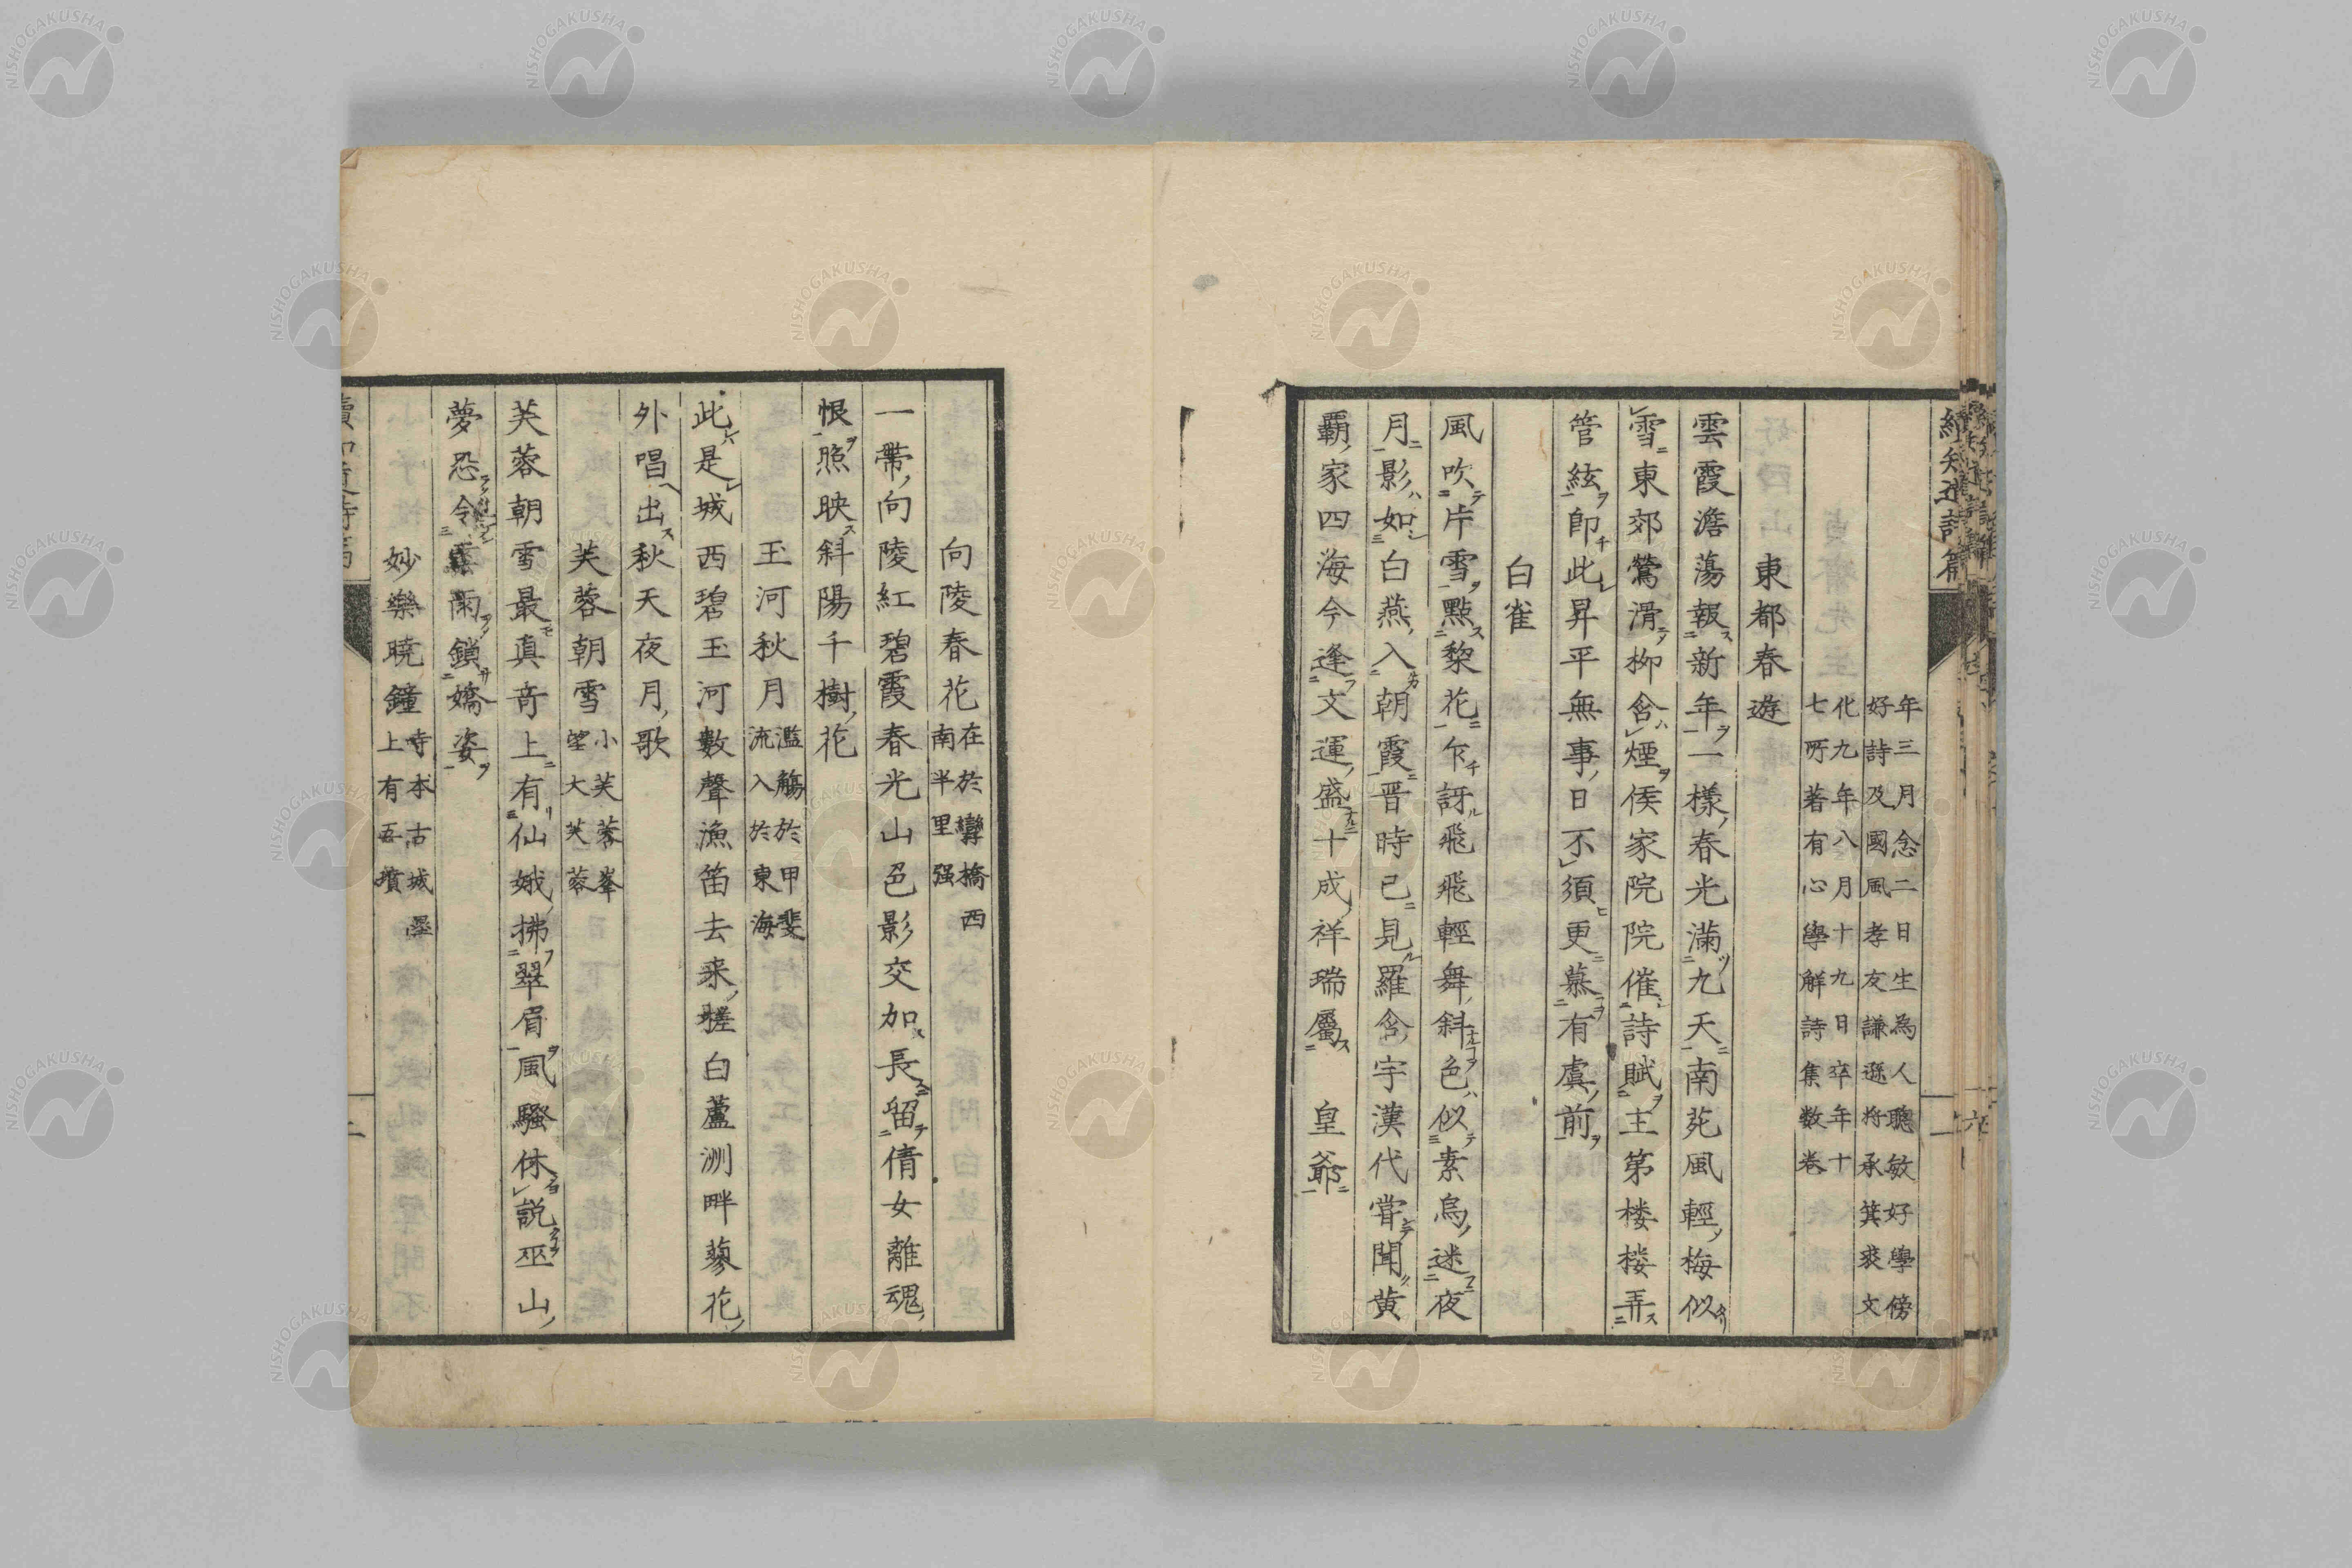 年三月念二日生為人聰敏好學傍
好詩及國風孝友謙遜将承箕裘文
化九年八月十九日卒年十
七所著有心學解詩集数卷
東都春遊
雲霞澹蕩報新年一樣春光滿九天南苑風輕梅似
雪東郊鶯滑柳含煙侯家院院催詩賦主第楼楼弄
管絃即此昇平無事日不須更慕有虞前
白雀
風吹片雪點梨花乍訝飛飛輕舞斜色似素烏迷夜
月影如白燕入朝霞晋時已見羅含宇漢代嘗聞黄
覇家四海今逢文運盛十成祥瑞屬　皇爺
向陵春花在於轡橋西
南半里强
一帶向陵紅碧霞春光山色影交加長留倩女離魂
恨照映斜陽千樹花
玉河秋月濫觴於甲斐
流入於東海
此是城西碧玉河數聲漁笛去来搓白蘆洲畔蓼花
外唱出秋天夜月歌
芙蓉朝雪小芙蓉峯
望大芙蓉
芙蓉朝雪最真奇上有仙娥拂翠眉風騷休説巫山
夢恐令雲雨鎖嬌姿
妙樂曉鐘寺本古城墨
上有吾墳
NISHOGAKUSHA